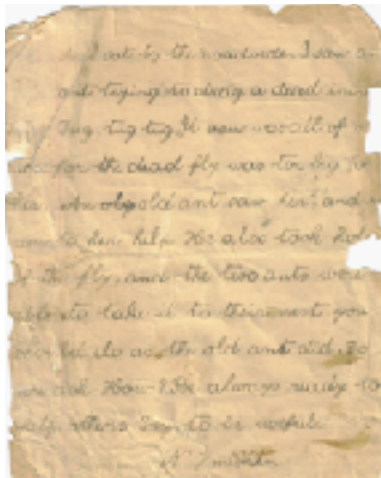 out by the I saw a
ant trying to drag a dead
Tug, tug tug, It was
for the dead fly was too big for
An old ant saw her and
came to her help. He also took hold
of the fly, and the two ants were
able to take it to their nest you
should do as the old ant did. Do
you ask How? Be always ready to
help others Try to be useful